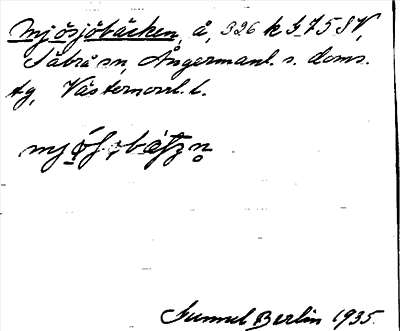 Mjösjöbäcken, å, 326 k I 75 SV,
Säbrå sn, Ångermanl. s. doms.
tg, Västernorrl. l.
Sumuel Berlin 1935.